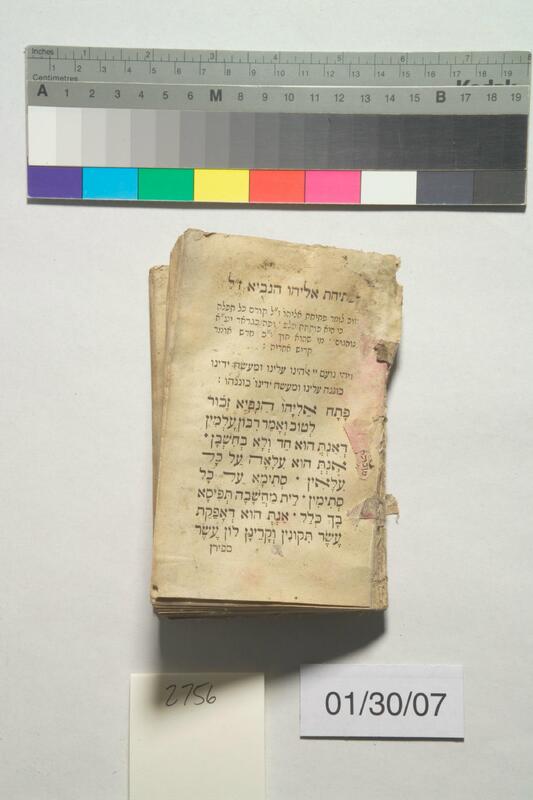 Inches 1 2 3 4 5 6 7 8
Centimetres 1 2 3 4 5 6 7 8 9 10 11 12 13 14 15 16 17 18 19
A 1 2 3 4 5 6 M 8 9 10 11 12 13 14 15 B 17 18 19
פתיחת אליהו הנביא ז״ל
לומר פתיחת אליהו ז״ל קודם כל תפלה
כי היא פותחת הלב
מי שהוא חזן
קדיש אחריה :
ויהי נועם יי אלהינו עלינו ומעשה ידינו
כוננה עלינו ומעשה ידינו כוננהו :
פָּתַח אֵלִיָּהוּ הַנָּבִיא זָכוּר
לְטוֹב וְאָמַר רִבּוֹן עָלְמִין
דְּאַנְתְּ הוּא חַד וְלָא בְחֻשְׁבָּן •
אַנְתְּ הוּא עִלָּאָה עַל כָּל
עִלָּאִין • סְתִימָא עַל כָּל
סְתִימִין • לֵית מַחֲשָׁבָה תְּפִיסָא
בָךְ כְּלָל • אַנְתְּ הוּא דְאַפַּקְתְּ
עֶשֶׂר תִּקּוּנִין וְקָרֵינָן לוֹן עֶשֶׂר
ספירן
2756
01/30/07